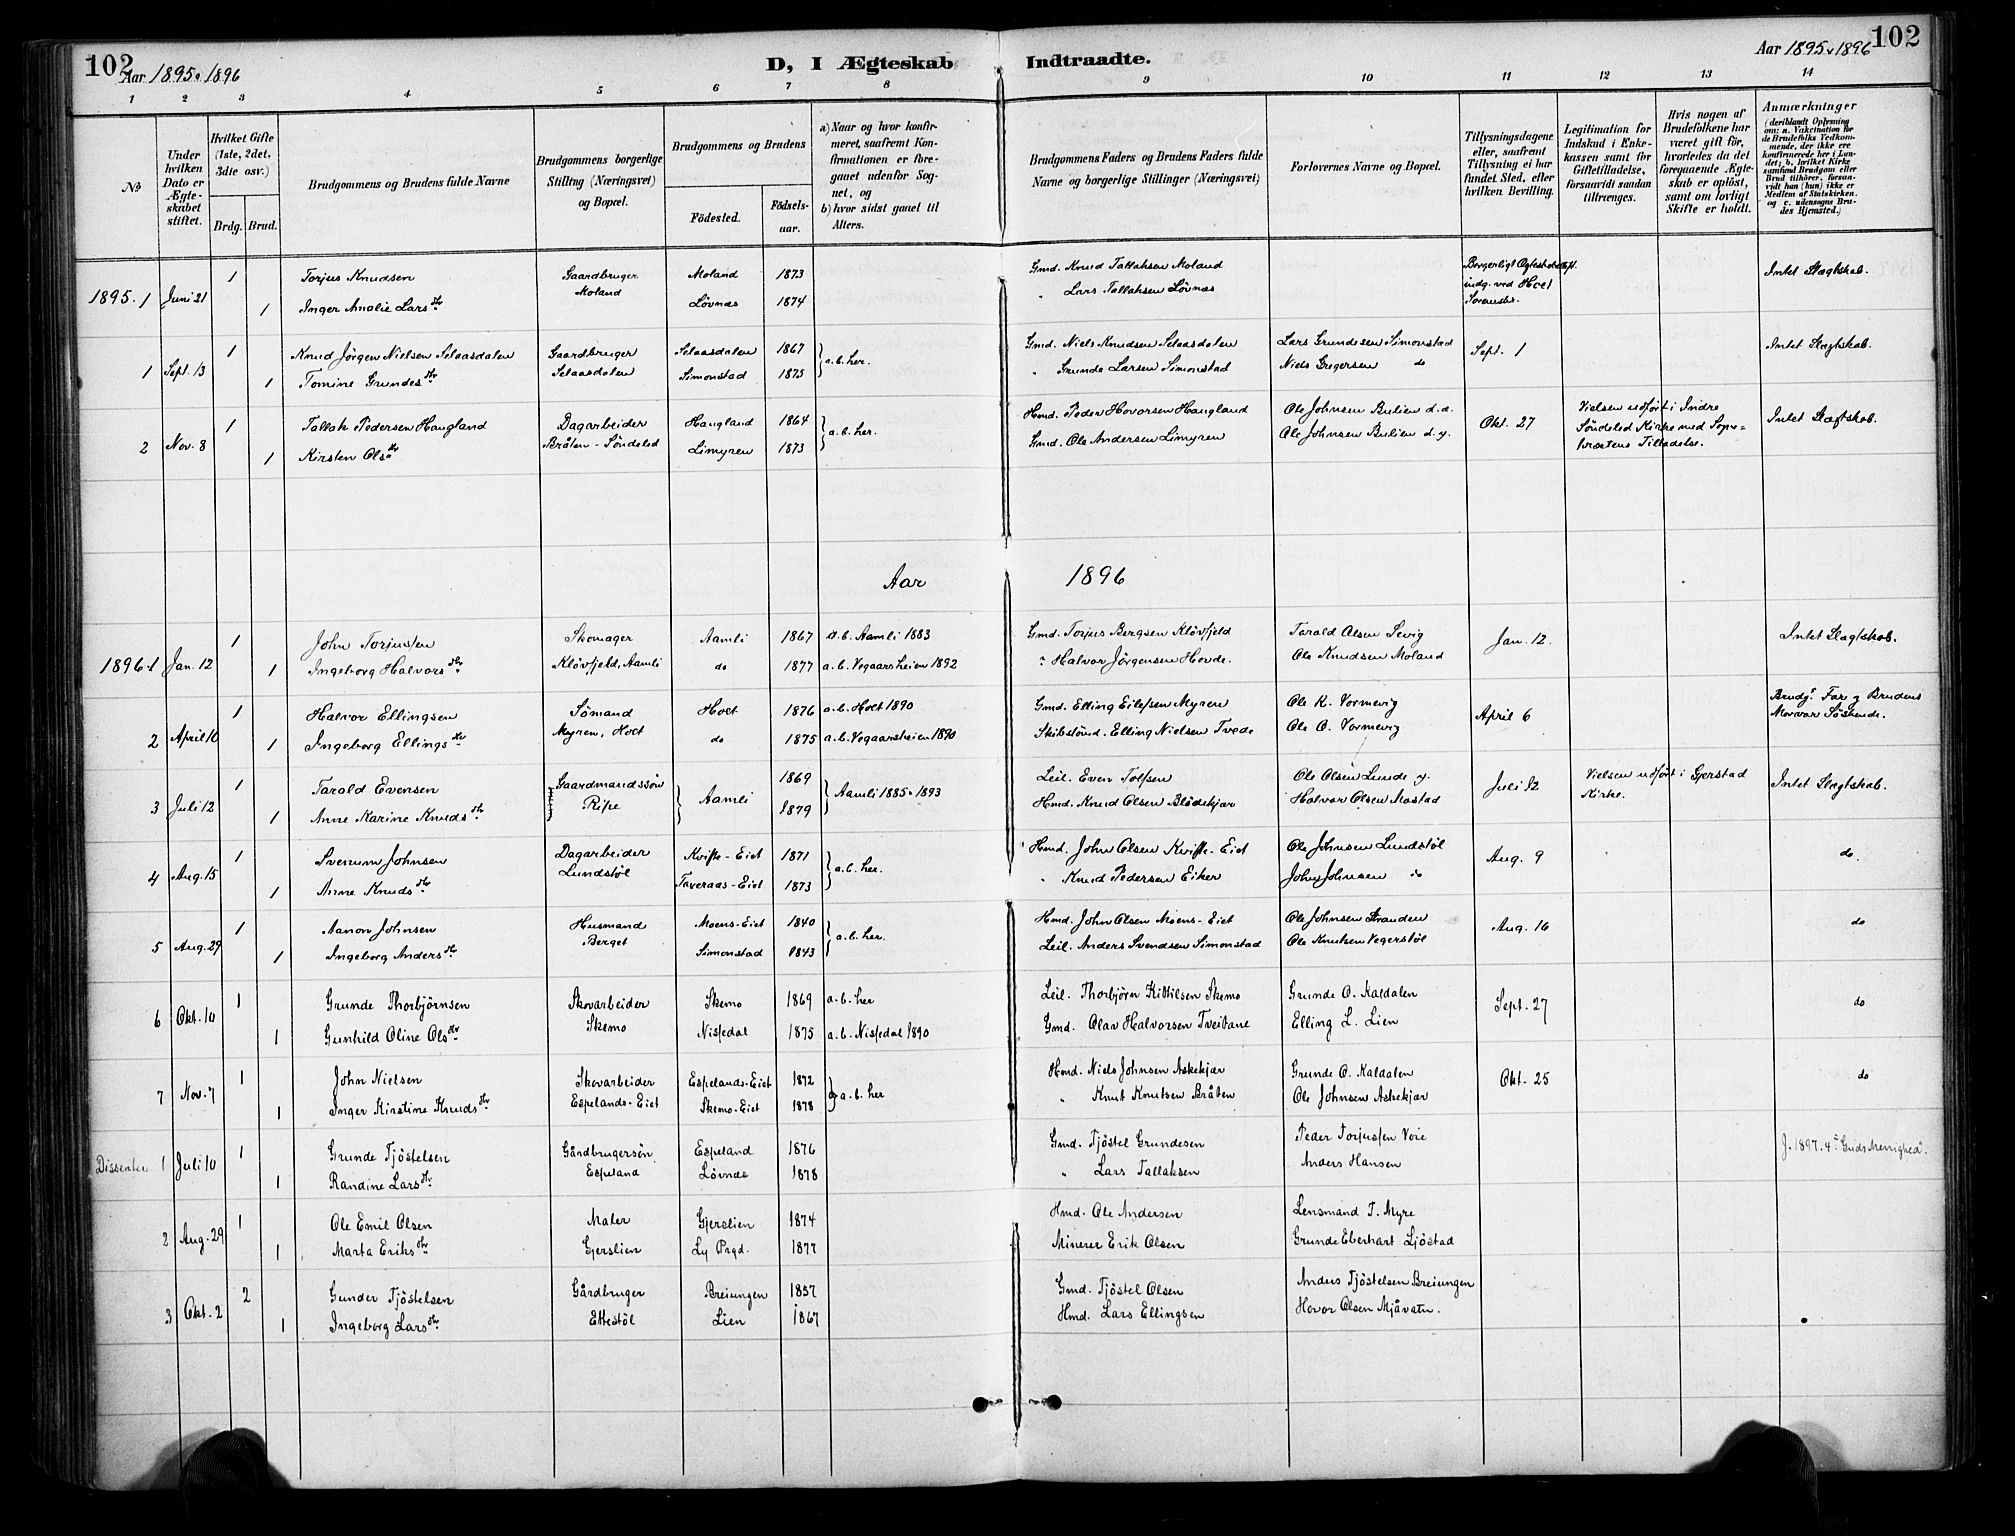 102
Aar 1895 & 1896
D, I Ægteskab Indtraadte.
Aar 1895 & 1896
102
1 2 3 4 5 6 7 8 9 10 11 12 13 14
No
Under hvilken Dato er Ægteskabet stiftet.
Hvilket Gifte (1ste, 2det, 3die osv.)
Brdg. Brud.
Brudgommens og Brudens fulde Navne
Brudgommens borgerlige Stilling (Næringsvei) og Bopæl.
Brudgommens og Brudens
Födested.
Födselsaar.
a) Naar og hvor konfirmeret, saafremt Konfirmationen er foregaaet udenfor Sognet, og
b) hvor sidst gaaet til Alters.
Brudgommens Faders og Brudens Faders fulde Navne og borgerlige Stillinger (Næringsvei)
Forlovernes Navne og Bopæl.
Tillysningsdagene eller, saafremt Tillysning ei har fundet Sted, efter hvilken Bevilling.
Legitimation for Indskud i Enkekassen samt for Giftetilladelse, forsaavidt saadan tiltrænges.
Hvis nogen af Brudefolkene har været gift för, hvorledes da det foregaaende Ægteskab er oplöst, samt om lovligt Skifte er holdt.
Anmærkninger (deriblandt Oplysning om: a. Vakcination for de Brudefolks Vedkommende, der ikke ere konfirmerede her i Landet; b. hvilket Kirkesamfund Brudgom eller Brud tilhörer, forsaavidt han (hun) ikke er Medlem af Statskirken. og c. udensogns Brudes Hjemsted.)
1895. 1 Juni 21 1 Torjus Knudsen Gaardbruger Moland 1873 Gmd. Knud Tallaksen Moland Borgerligt Ægteskab Intet Slægtskab.
1 Inger Amalie Larsdtr Moland Lövnæs 1874 " Lars Tallaksen Lövnæs indg. ved Holt Sorenskr.
1 Sept. 13 1 Knud Jörgen Nielsen Selaasdalen Gaardbruger Selaasdalen 1867 a.b. her. Gmd. Niels Knudsen Selaasdalen Lars Grundesen Simonstad Sept. 1 Intet Slægtskab.
1 Tomine Grundesdtr Selaasdalen Simonstad 1875 " Grunde Larsen Simonstad Niels Gregersen do
2 Nov. 8 1 Tallak Pedersen Haugland Dagarbeider Haugland 1864 a.b. her. Hmd. Peder Hovorsen Haugland Ole Johnsen Bulien d.æ. Okt. 27 Vielsen udført i Indre Söndeled Kirke med Sognepræstens Tilladelse. Intet Slægtskab.
1 Kirsten Olsdtr Bråten - Söndeled Limyren 1873 Gmd. Ole Andersen Limyren Ole Johnsen Bulien d.y.
Aar 1896
1896. 1 Jan. 12 1 John Torjussen Skomager Aamli 1867 a.b. Aamli 1883 Gmd. Torjus Bergsen Klövfjeld Tarald Olsen Sevig Jan. 12. Intet Slagtskab.
1 Ingeborg Halvorsdtr Klövfjeld, Aamli do 1877 a.b. Vegaarsheien 1892 " Halvor Jörgensen Hovde. Ole Knudsen Moland
2 April 10 1 Halvor Ellingsen Sömand Holt 1876 a.b. Holt 1890 Gmd. Elling Eilefsen Myren Ole K. Vormevig April 6 Brudgs Far og Brudens
1 Ingeborg Ellingsdtr Myren, Holt do 1875 a.b. Vegaarsheien 1890 Skibstömd. Elling Nielsen Tvede Ole O. Vormevig Mor var Söskende.
3 Juli 12 1 Tarald Evensen Gaardmandssön Aamli 1869 Aamli 1885 & 1893 Leil. Even Tolfsen Ole Olsen Lunde y. Juli 12 Vielsen udfört i Gjerstad Kirke. Intet Slægtskab.
1 Anne Karine Knudsdtr Ripe 1879 Hmd. Knud Olsen Blödekjær Halvor Olsen Mostad
4 Aug. 15 1 Svenum Johnsen Dagarbeider Kvifte-Eiet 1871 a.b. her. Hmd. John Olsen Kvifte-Eiet Ole Johnsen Lundstöl Aug. 9 do
1 Anne Knudsdtr Lundstöl Taveraas-Eiet 1873 " Knud Pedersen Eiker John Johnsen do
5 Aug. 29 1 Aanon Johnsen Husmand Moens-Eiet 1840 a.b. her. Hmd. John Olsen Moens-Eiet Ole Johnsen Stranden Aug. 16 do
1 Ingeborg Andersdtr Berget Simonstad 1843 Leil. Anders Svendsen Simonstad Ole Knutsen Vegerstöl
6 Okt. 10 1 Grunde Thorbjörnsen Skovarbeider Skemo 1869 a.b. her Leil. Thorbjörn Kittilsen Skemo Grunde O. Kaldalen Sept. 27 do
1 Gunhild Oline Olsdtr Skemo Nissedal 1875 a.b. Nissedal 1890 Gmd. Olav Halvorsen Tveitane Elling L. Lien
7 Nov. 7 1 John Nielsen Skovarbeider Espelands-Eiet 1872 a.b. her Hmd. Niels Johnsen Askekjær Grunde O. Kaldalen Okt. 25 do
1 Inger Kirstine Knudsdtr Espelands-Eiet Skemo-Eiet 1878 " Knut Knutsen Bråten Ole Johnsen Askekjær
Dissenter 1 Juli 10 1 Grunde Tjöstelsen Gårdbrugersön Espeland 1876 Gmd. Tjöstel Grundesen Peder Torjussen Voie J. 1897. 4. "Guds Menighed".
1 Randine Larsdtr Espeland Lövnæs 1878 " Lars Tallaksen Anders Hansen
2 Aug. 29 1 Ole Emil Olsen Maler Gjerslien 1874 Hmd. Ole Andersen Lensmand T. Myre
1 Marta Eriksdtr Gjerslien Ly Prgd. 1877 Minerer Erik Olsen Grunde Eberhart Ljöstad
3 Okt. 2 2 Gunder Tjöstelsen Gårdbruger Breiungen 1857 Gmd. Tjöstel Olsen Anders Tjöstelsen Breiungen
1 Ingeborg Larsdtr Ettestöl Lien 1867 Hmd. Lars Ellingsen Hovor Olsen Mjåvatn.